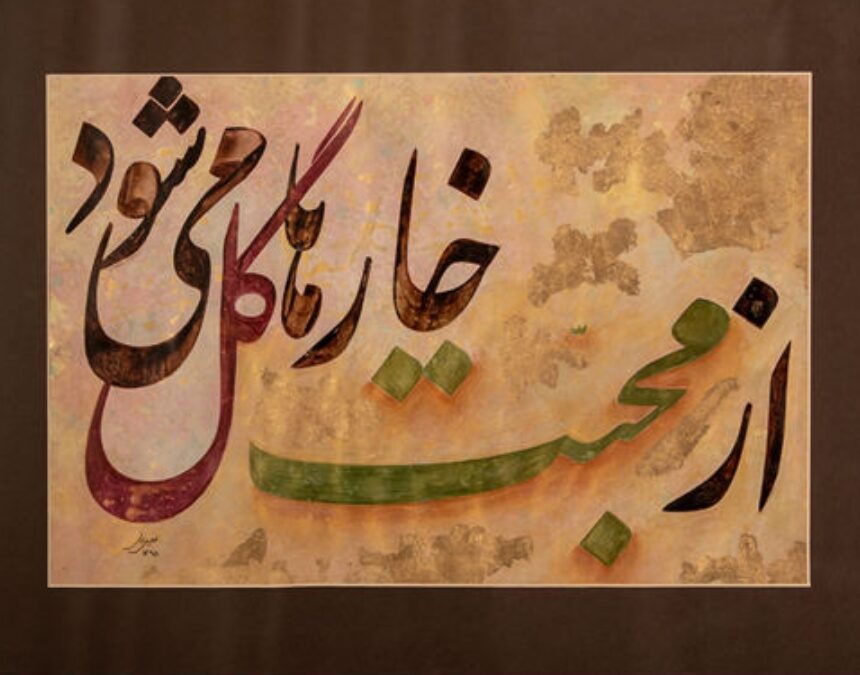 از محبّت
خارها گل می شود